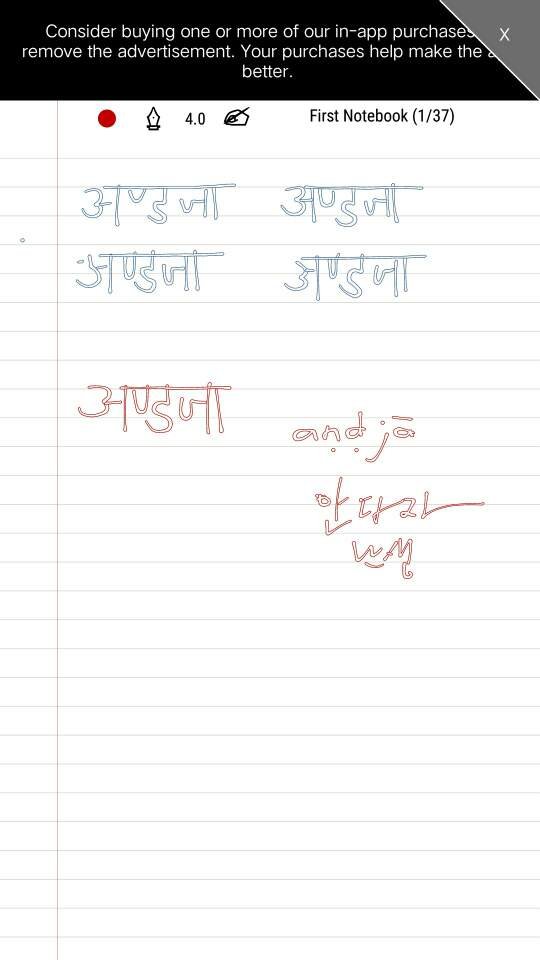 Consider buying one or more of our in-app purchases
remove the advertisement. Your purchases help make the
better.
X
4.0
First Notebook (1/37)
अण्डजा अण्डजा
अण्डजा अण्डजा
अण्डजा
aṇḍjā